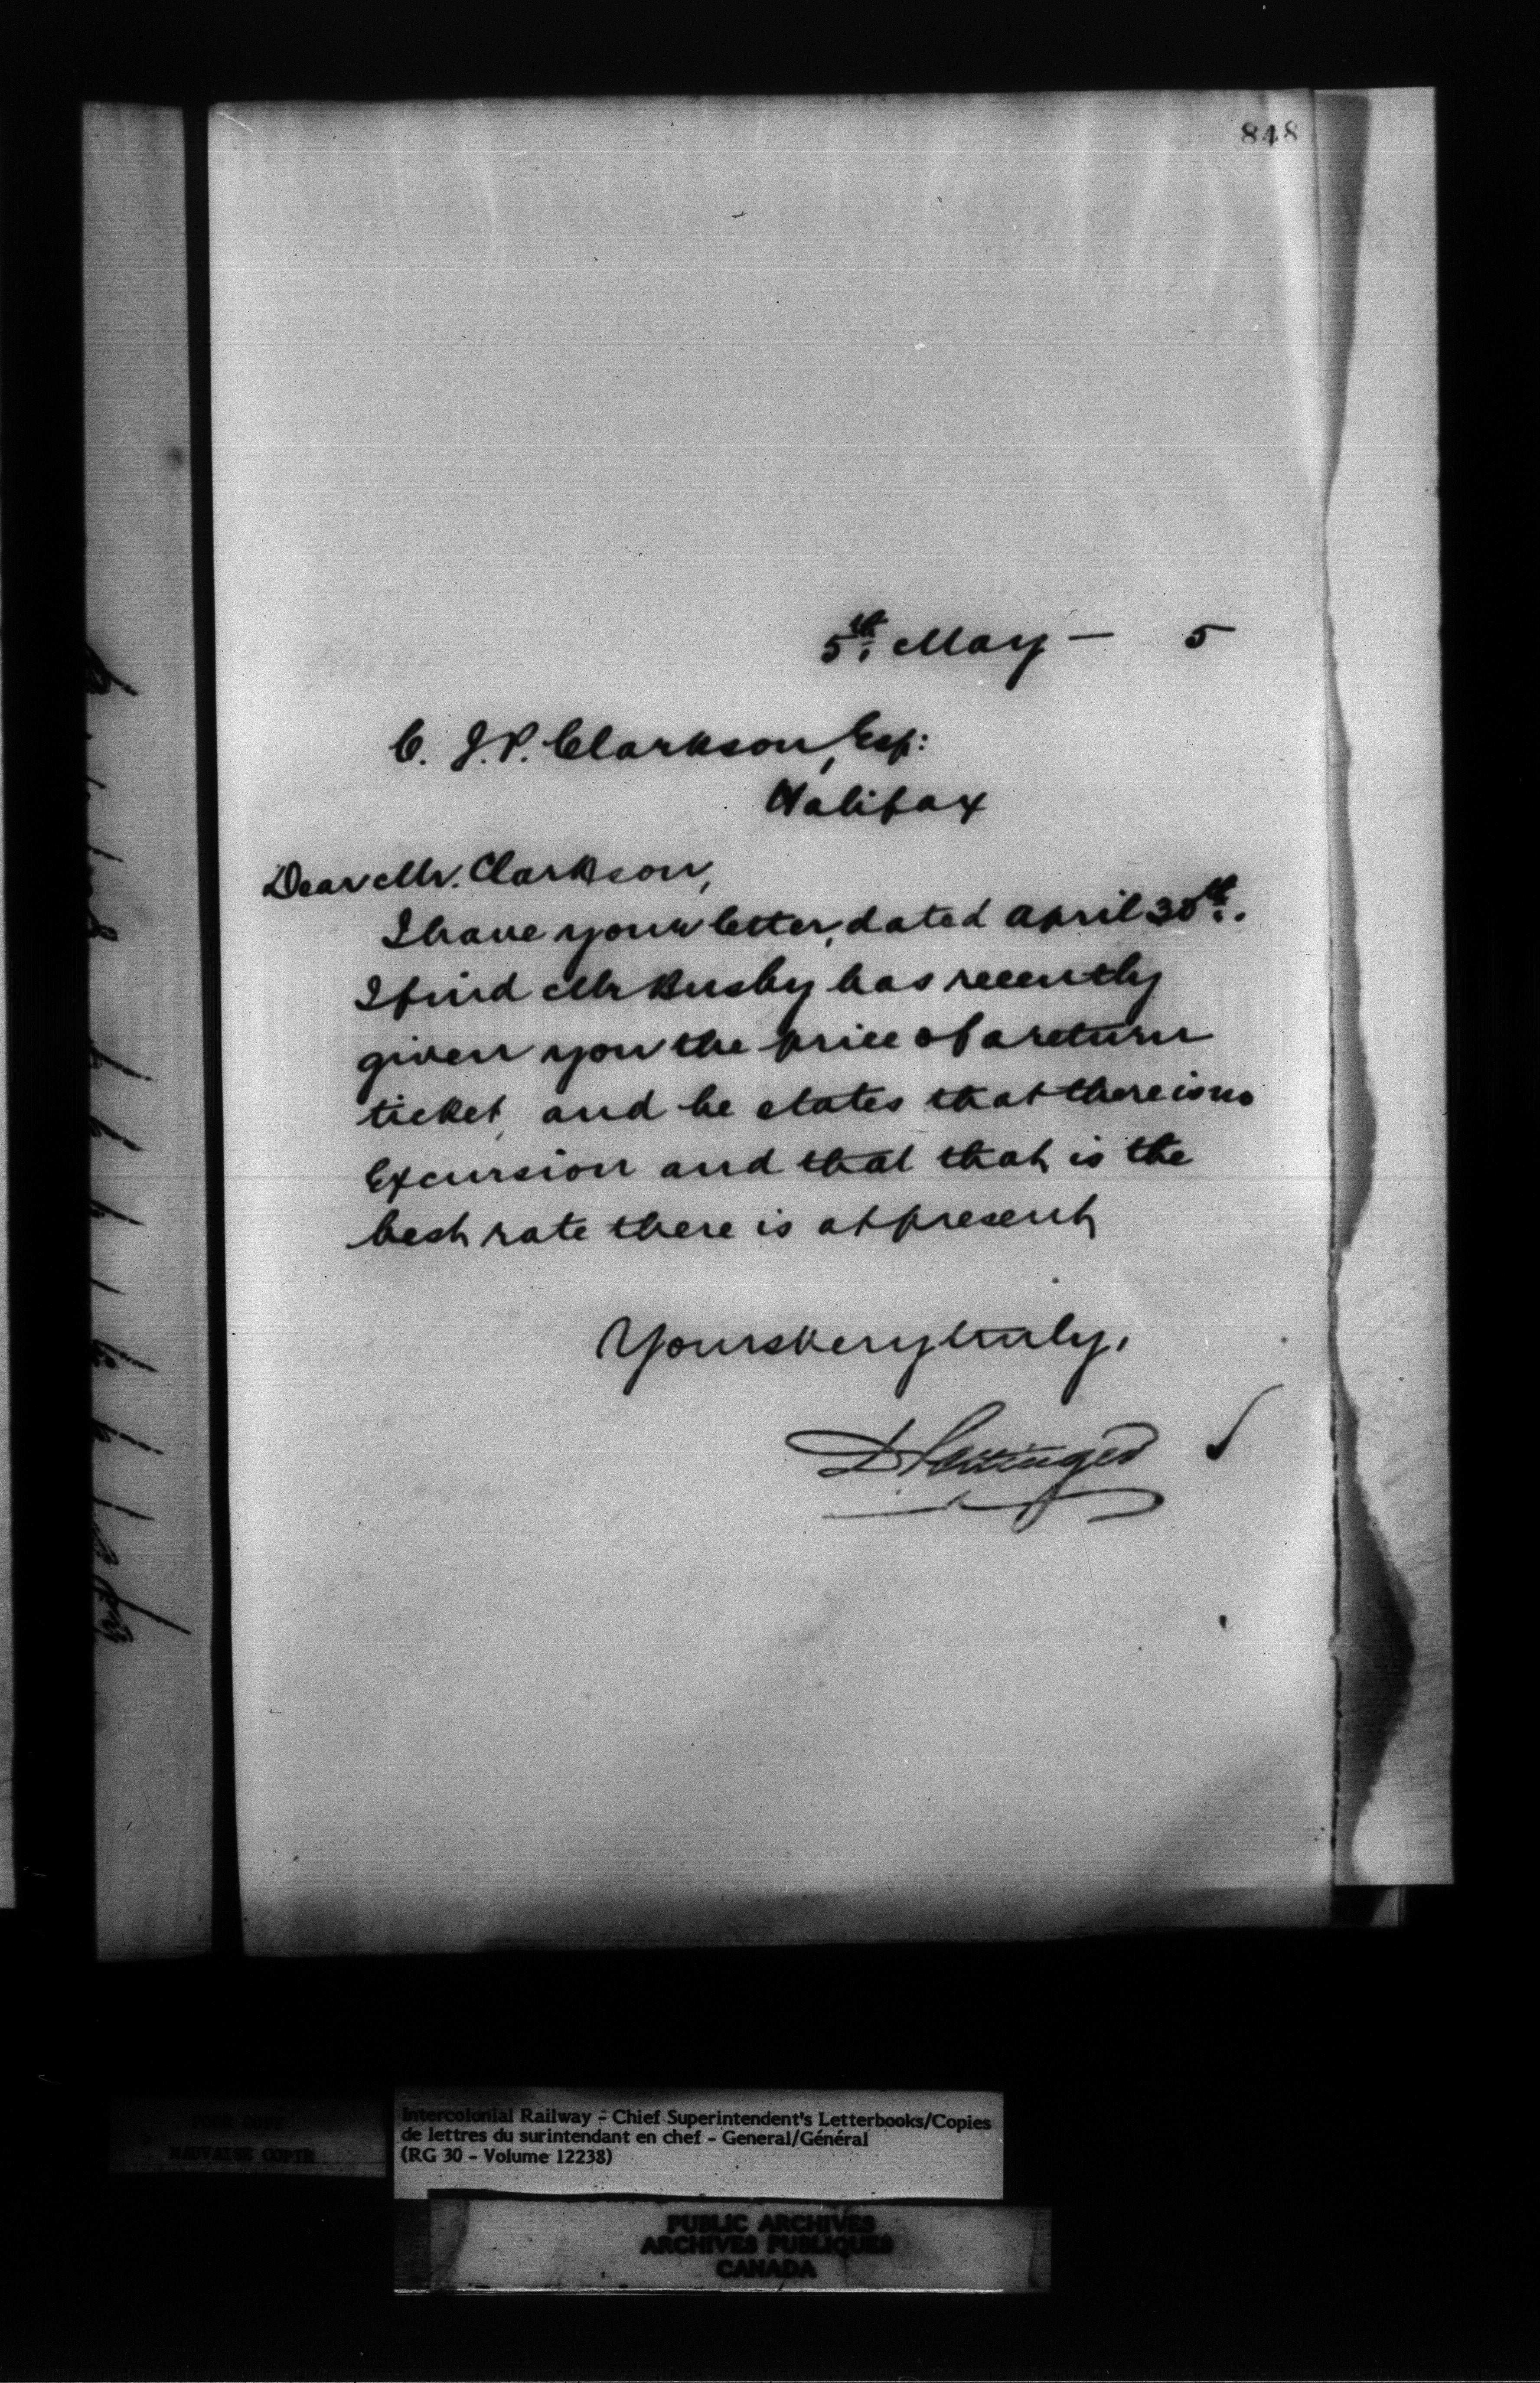 848
5th. May — 5
C. J. P. Clarkson, Esq:
Halifax
Dear Mr. Clarkson,
I have your letter, dated April 30th.
I find Mr Busby has recently
given you the price of a return
ticket, and he states that there is no
Excursion and that that is the
best rate there is at present
Yours very truly,
D Pottinger
POOR COPY
MAUVAISE COPIE
Intercolonial Railway - Chief Superintendent's Letterbooks/Copies
de lettres du surintendant en chef - General/Général
(RG 30 - Volume 12238)
PUBLIC ARCHIVES
ARCHIVES PUBLIQUES
CANADA